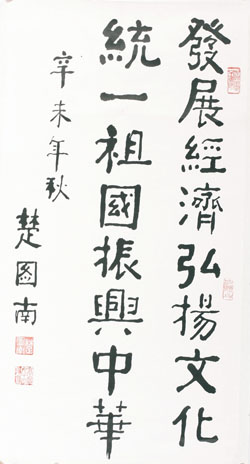 發展經濟弘揚文化
統一祖國振興中華
辛未年秋
楚圖南